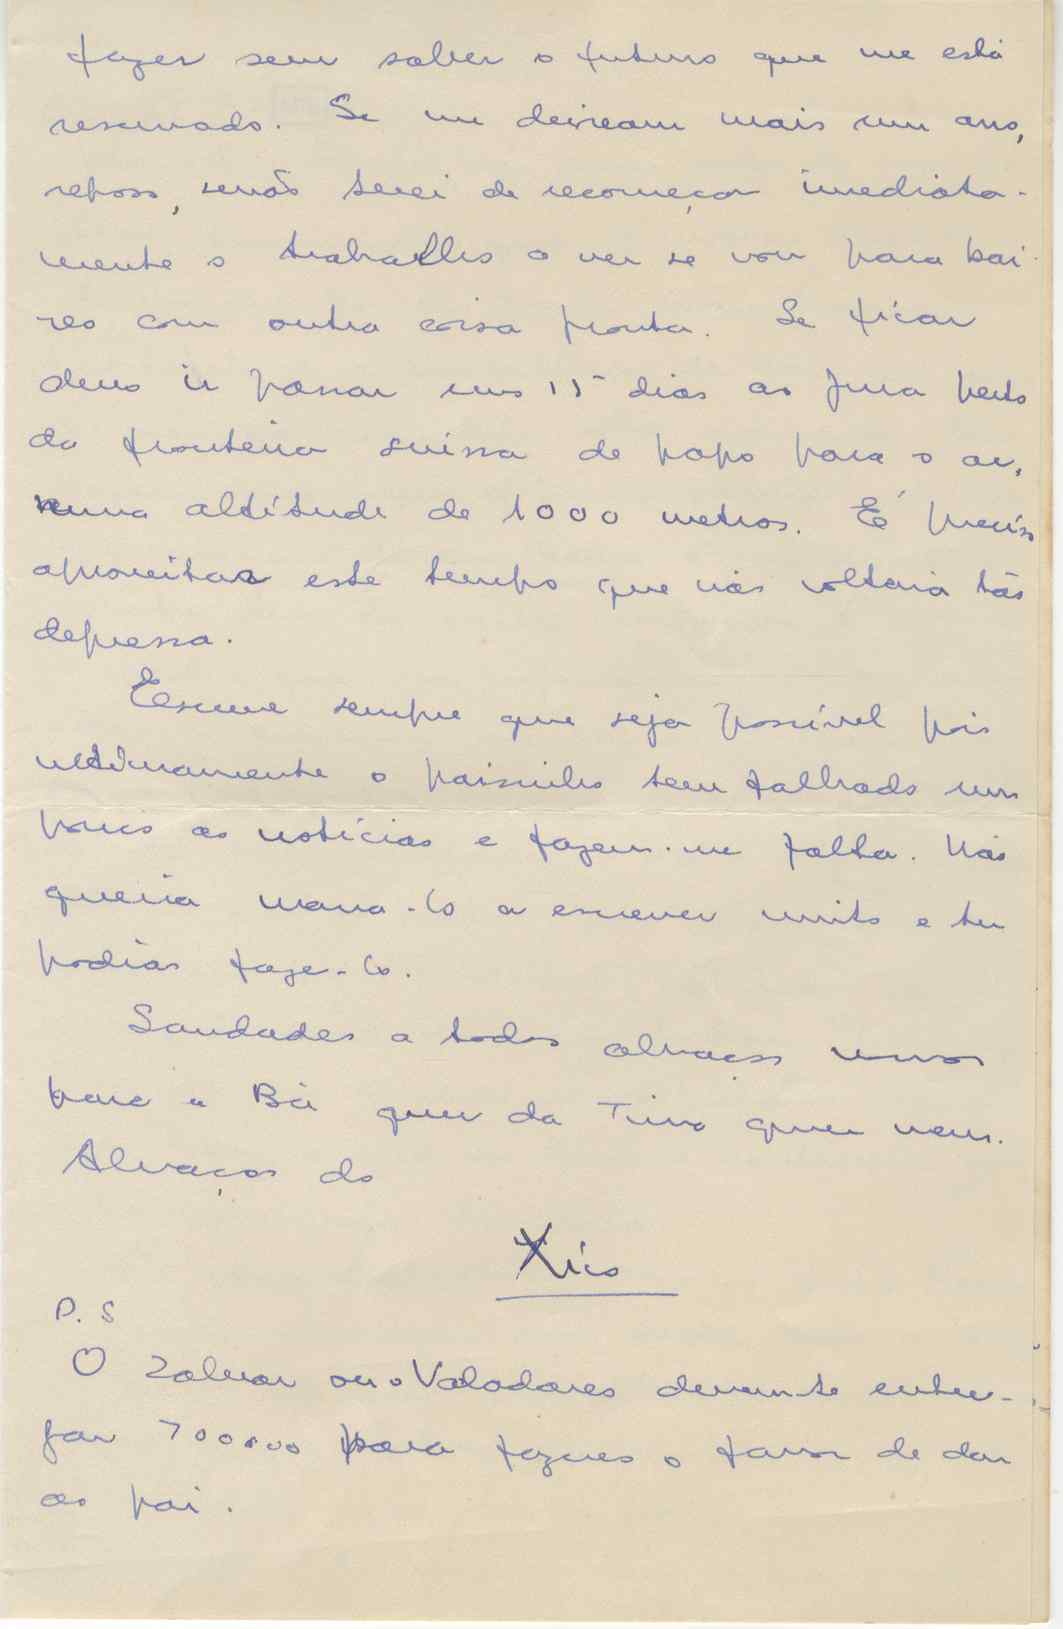 fazer sem saber o futuro que me está
reservado. Se me deixam mais um ano,
reposo, senão terei de recomeçar imediata-
mente o trabalho a ver se vou para bai-
xo com outra coisa pronta. Se ficar
devo ir passar uns 15 dias ao Jura perto
da fronteira suissa de papo para o ar,
numa altitude de 1000 metros. É preciso
aproveitar este tempo que não voltará tão
depressa.
Escreve sempre que seja possível pois
ultimamente o paisinho tem falhado um
pouco as notícias e fazem-me falta. Não
queria massa-lo a escrever muito e tu
podias faze-lo.
Saudades a todos abraços
para a Bá quer da Tina quer meus.
Abraços do
Xico
P. S
O Zaluar ou o Valadares devem-te entre-
gar 700$00 para fazeres o favor de dar
ao pai.